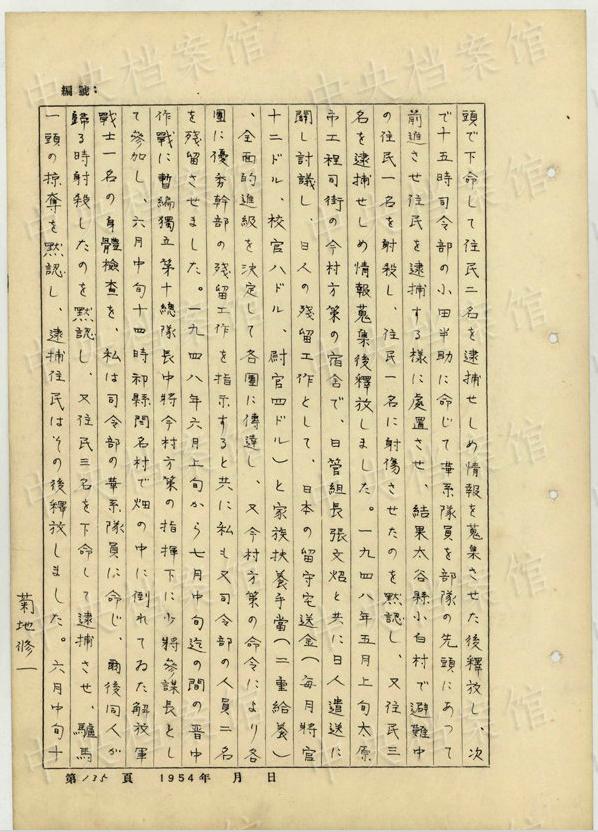 編號：
頭で下命して住民二名を逮捕せしめ情報を蒐集させた後釋放し、次
で十五時司令部の小田半助に命じて華系隊員を部隊の先頭にあつて
前進させ住民を逮捕する様に處置させ、結果太谷縣小白村で避難中
の住民一名を射殺し、住民一名に射傷させたのを黙認し、又住民三
名を逮捕せしめ情報蒐集後釋放しました。一九四八年五月上旬太原
市工程司街の今村方策の宿舍で、日管組長張文炤と共に日人遣送に
関し討議し、日人の残留工作として、日本の留守宅送金(毎月將官
十二ドル、校官八ドル、尉官四ドル)と家族扶養手當(二重給養)
、全面的進級を決定して各團に傳達し、又今村方策の命令により各
團に優秀幹部の残留工作を指示すると共に私も又司令部の人員二名
を残留させました。一九四八年六月上旬から七月中旬迄の間の晋中
作戰に暫編獨立第十總隊長中將今村方策の指揮下に少將參謀長とし
て參加し、六月中旬十四時祁縣閻名村で畑の中に倒れてゐた解放軍
戰士一名の身體檢查を、私は司令部の華系隊員に命じ、爾後同人が
歸る時射殺したのを黙認し、又住民三名を下命して逮捕させ、驢馬
一頭の掠奪を黙認し、逮捕住民はその後釋放しました。六月中旬十
菊地修一
第135頁 1954年 月 日
中央档案馆